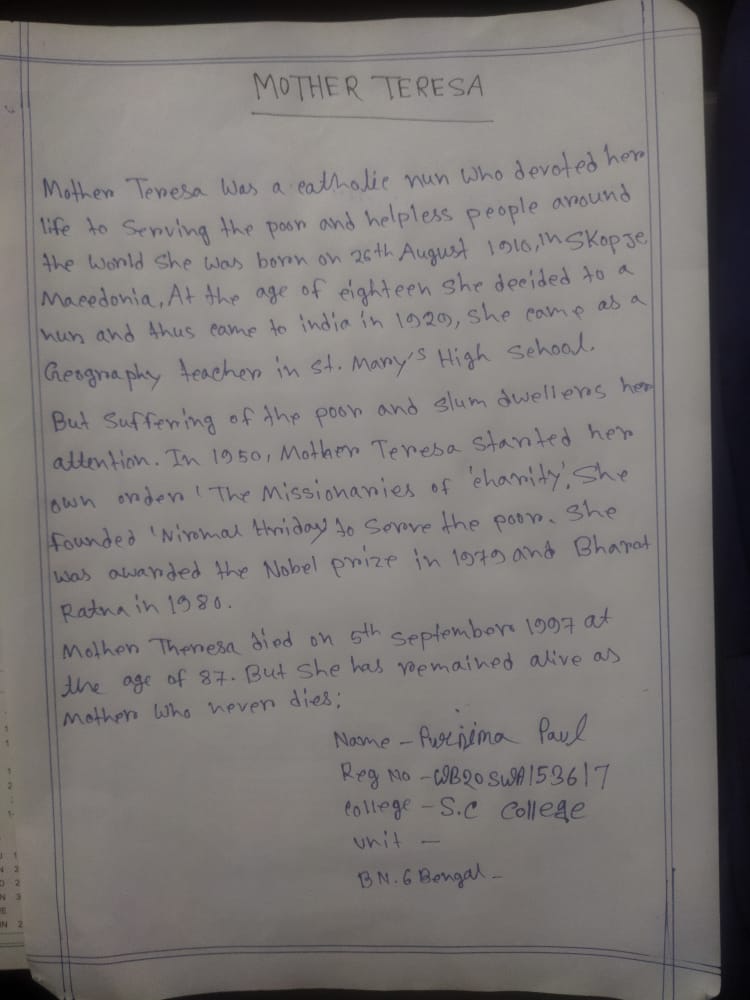 MOTHER TERESA
Mother Teresa Was a catholic nun who devoted her
life to Serving the poor and helpless people around
the World She was born on 26th August 1910, In Skopje
Macedonia, At the age of eighteen she decided to a
nun and thus came to india in 1929, she came as a
Geography teacher in St. Mary's High School.
But Suffering of the poor and slum dwellers her
attention. In 1950, Mother Teresa started her
own order 'The Missionaries of 'charity'. She
founded 'Nirmal Hriday' to Serve the poor. She
was awarded the Nobel prize in 1979 and Bharat
Ratna in 1980.
Mother Theresa died on 5th September 1997 at
the age of 87. But She has remained alive as
Mother Who never dies;
Name - Purnima Paul
Reg No - WB20SWA153617
College - S.C College
Unit -
BN. 6 Bengal -